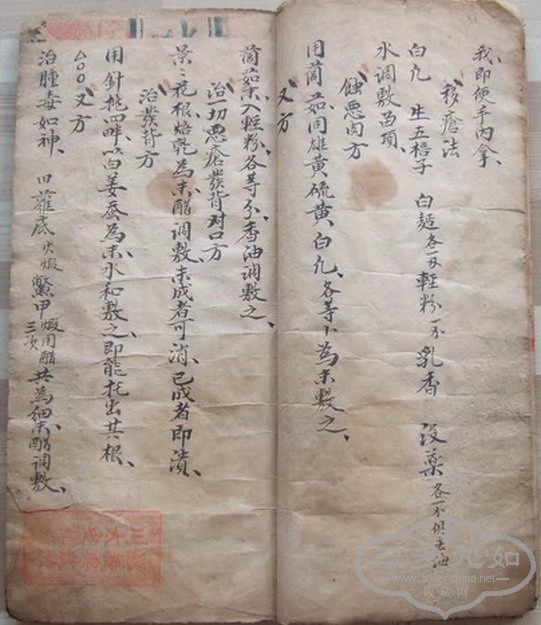 我即便手内拿、
移瘡法
白凡 生五棓子 白麺各一两軽粉一分乳香 没薬各一分俱去油
水調敷留頂、
蝕惡肉方
用蕳茹同雄黄硫黄、白凡、各等分為末敷之、
又方
蕳茹末入軽粉、各等分、香油調敷之、
治一切惡瘡發背对口方
花根焙乾為末、醋調敷、未成者可消、已成者即潰、
治發背方
用針挑四畔、白姜蚕為末、水和敷之、即能托出其根、
△○○又方
治腫毒如神、旧籮底火煅鱉甲煅用醋三次共為细末醋調敷、
www.silver-china.net
收藏网